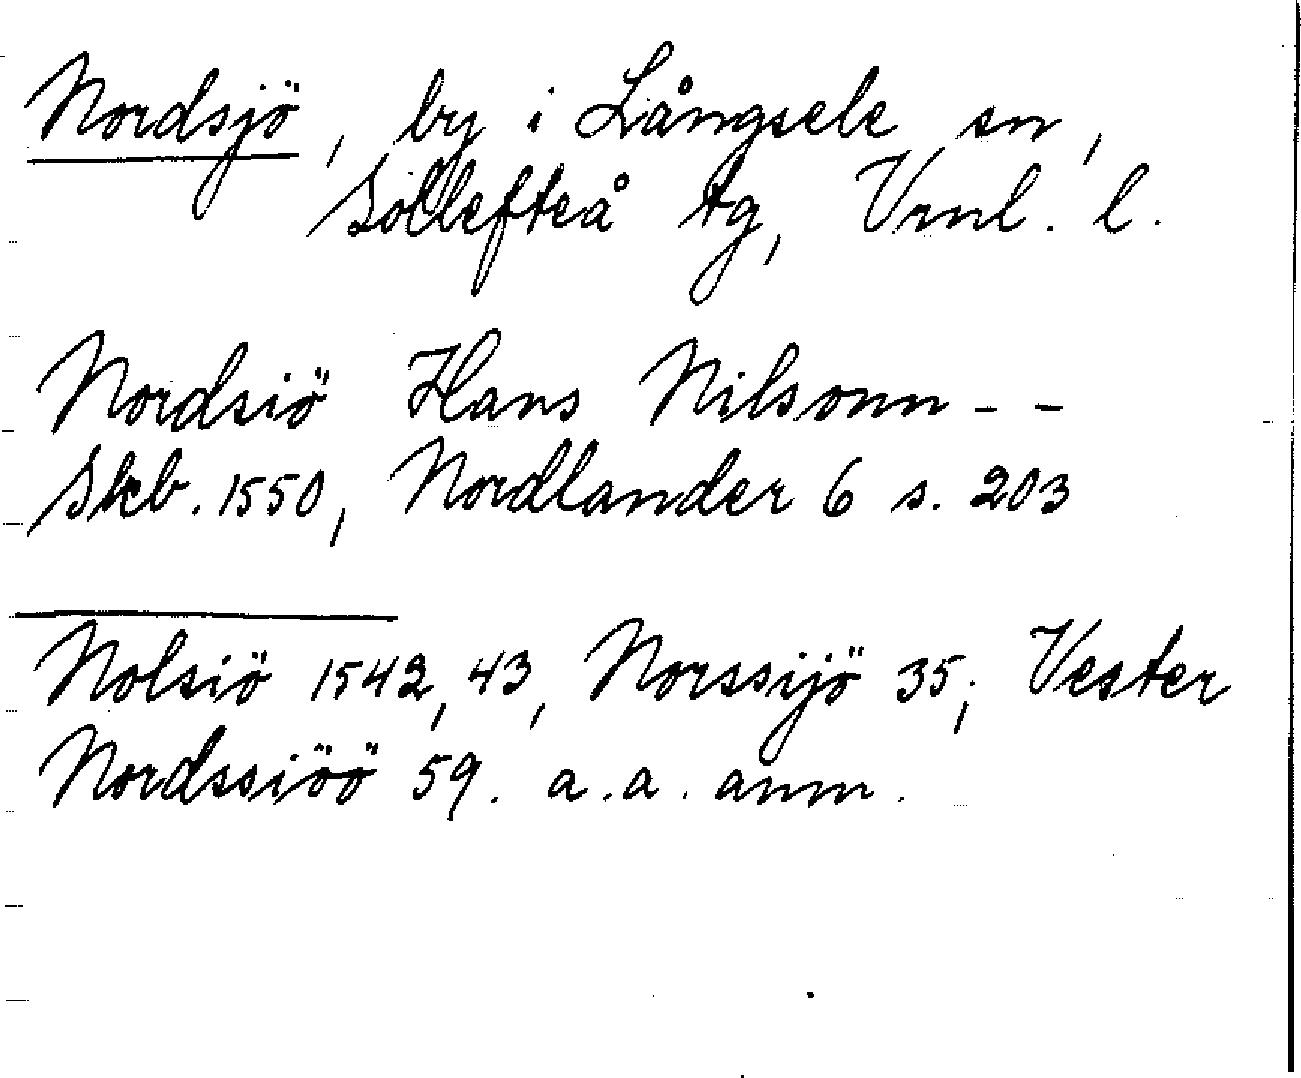 Nordsjö, by i Långsele sn,
Sollefteå tg, Vrnl. l.
Nordsiö Hans Nilsonn - -
Skb. 1550, Nordlander 6 s. 203
Nolsiö 1542, 43, Norssijö 35; Vester
Nordssiöö 59. a.a. anm.